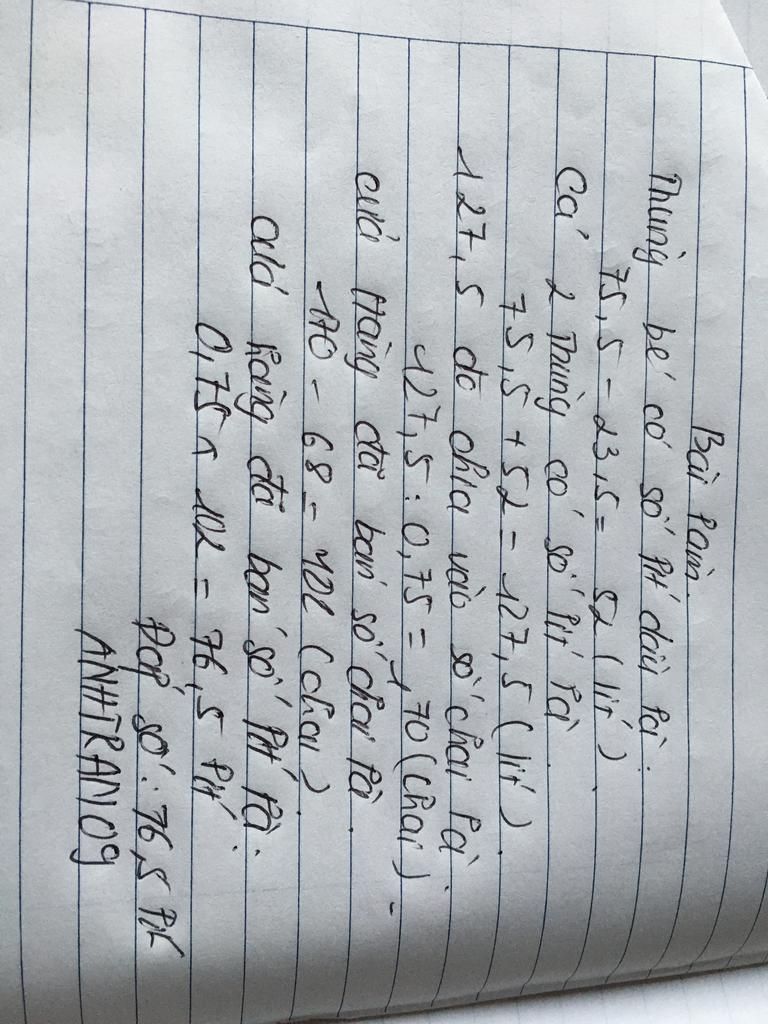 Bài làm
Thùng bé có số lít dầu là:
75,5 - 23,5 = 52 (lít)
Cả 2 thùng có số lít là
75,5 + 52 = 127,5 (lít).
127,5 do chia vào số chai là:
127,5 : 0,75 = 170 (chai).
cửa Hàng đã bán số chai là.
170 - 68 = 102 (chai)
cửa hàng đã bán số lít là:
0,75 x 102 = 76,5 lít
Đáp số: 76,5 lít
ANHTRAN09